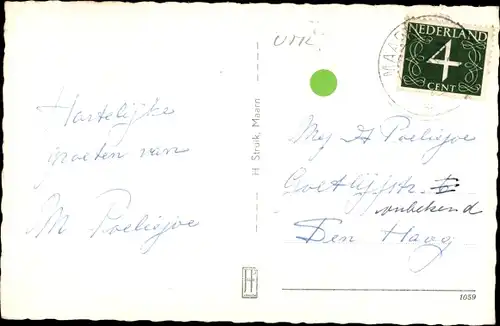 Hartelijke
groeten van
M Poeliejoe
H Struik, Maarn
NEDERLAND
4
CENT
MAARN
Mej H Poeliejoe
Goetlijfstr
onbekend
Den Haag
1059